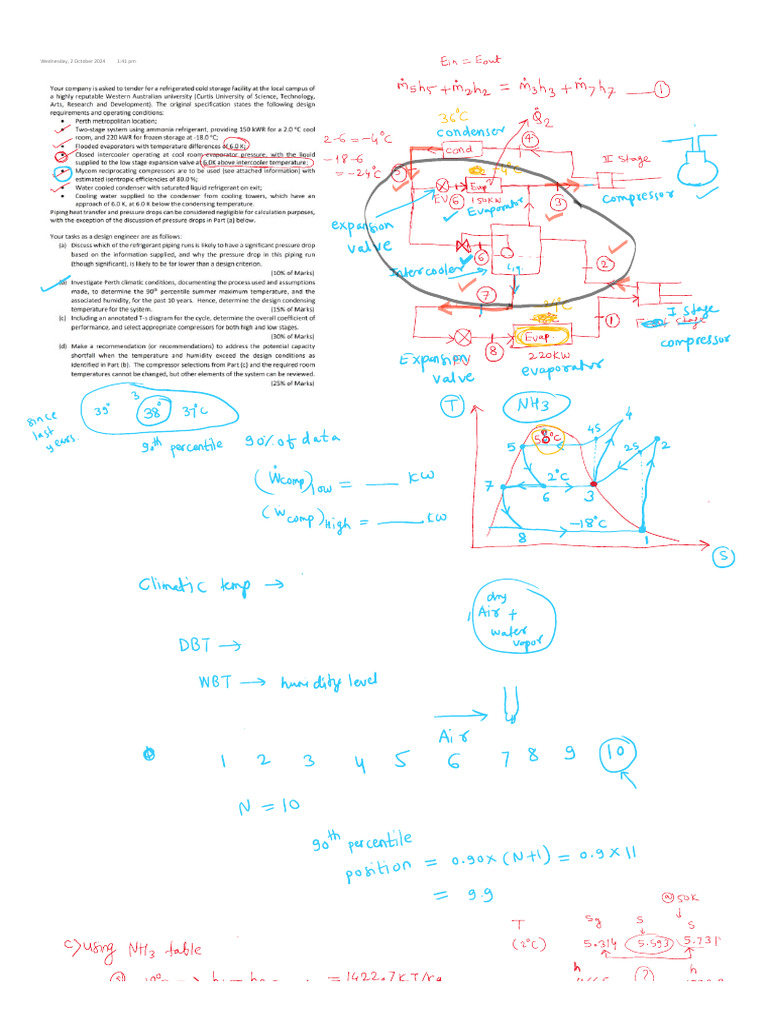 Wednesday, 2 October 2024 1:41 pm
Your company is asked to tender for a refrigerated cold storage facility at the local campus of
a highly reputable Western Australian university (Curtis University of Science, Technology,
Arts, Research and Development). The original specification states the following design
requirements and operating conditions:
• Perth metropolitan location;
• Two-stage system using ammonia refrigerant, providing 150 kWR for a 2.0 °C cool
room, and 220 kWR for frozen storage at -18.0 °C;
• Flooded evaporators with temperature differences of 6.0 K;
• Closed intercooler operating at cool room evaporator pressure, with the liquid
supplied to the low stage expansion valve at 6.0K above intercooler temperature;
• Mycom reciprocating compressors are to be used (see attached information) with
estimated isentropic efficiencies of 80.0 %;
• Water cooled condenser with saturated liquid refrigerant on exit;
• Cooling water supplied to the condenser from cooling towers, which have an
approach of 6.0 K, at 6.0 K below the condensing temperature.
Piping heat transfer and pressure drops can be considered negligible for calculation purposes,
with the exception of the discussion of pressure drops in Part (a) below.
Your tasks as a design engineer are as follows:
(a) Discuss which of the refrigerant piping runs is likely to have a significant pressure drop
based on the information supplied, and why the pressure drop in this piping run
(though significant), is likely to be far lower than a design criterion.
(10% of Marks)
(b) Investigate Perth climatic conditions, documenting the process used and assumptions
made, to determine the 90th percentile summer maximum temperature, and the
associated humidity, for the past 10 years. Hence, determine the design condensing
temperature for the system.
(15% of Marks)
(c) Including an annotated T-s diagram for the cycle, determine the overall coefficient of
performance, and select appropriate compressors for both high and low stages.
(30% of Marks)
(d) Make a recommendation (or recommendations) to address the potential capacity
shortfall when the temperature and humidity exceed the design conditions as
identified in Part (b). The compressor selections from Part (c) and the required room
temperatures cannot be changed, but other elements of the system can be reviewed.
(25% of Marks)
Ein = Eout
ṁ5h5 + ṁ2h2 = ṁ3h3 + ṁ7h7 — 1
36°C
condenser
Q̇2
2-6 = -4°C
-18-6
= -24°C
cond
4
5
-4°C
II stage
compressor
Evap
EV 6
150KW
Evaporator
3
expansion
valve
6
2
Intercooler
Liq.
7
I stage
compressor
1
8
Evap.
Expansion
valve
220KW
evaporator
since
last
years.
39° 3 38° 37°C
90th percentile 90% of data
(Ẇcomp)low = ___ KW
(Wcomp)high = ___ KW
T
NH3
4
4s
5
2s
2
2°C
7
6
3
-18°C
8
1
S
Climatic temp →
dry
Air +
water
vapor
DBT →
WBT → humidity level
Air
1 2 3 4 5 6 7 8 9 10
N = 10
90th percentile
position = 0.90x (N+1) = 0.9 x 11
= 9.9
@ 50K
T Sg S S
(2°C) 5.314 5.593 5.731
c) using NH3 table
h ? h
= 1422.7 KJ/kg